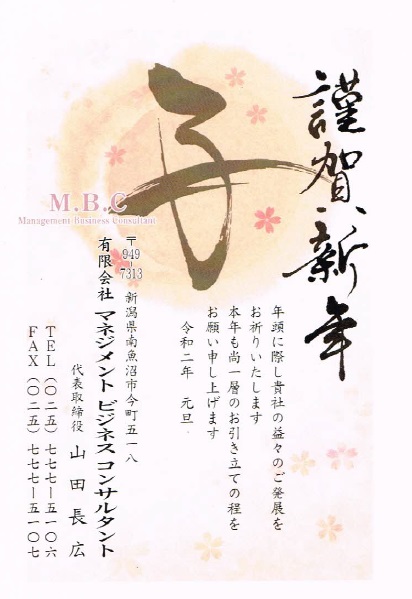 謹賀新年
子
年頭に際し貴社の益々のご発展を
お祈りいたします
本年も尚一層のお引き立ての程を
お願い申し上げます
令和二年 元旦
M.B.C
Management Business Consultant
〒949-7313 新潟県南魚沼市今町五一八
有限会社 マネジメント ビジネス コンサルタント
代表取締役 山田長広
TEL(〇二五)七七七ー五一〇六
FAX(〇二五)七七七ー五一〇七